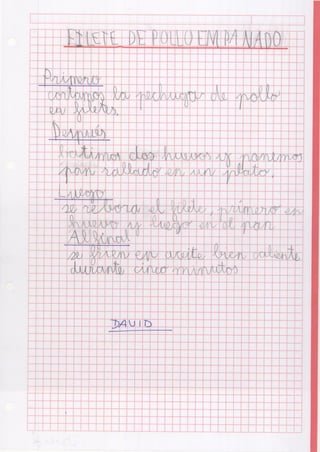 FILETE DE POLLO EMPANADO
Primero
cortamos la pechuga de pollo
en filetes.
Después
batimos dos huevos y ponemos
pan rallado en un plato.
Luego
se rebora el filete, primero en
huevo y luego en el pan
Al final
se frien en aceite bien caliente
durante cinco minutos
DAVID